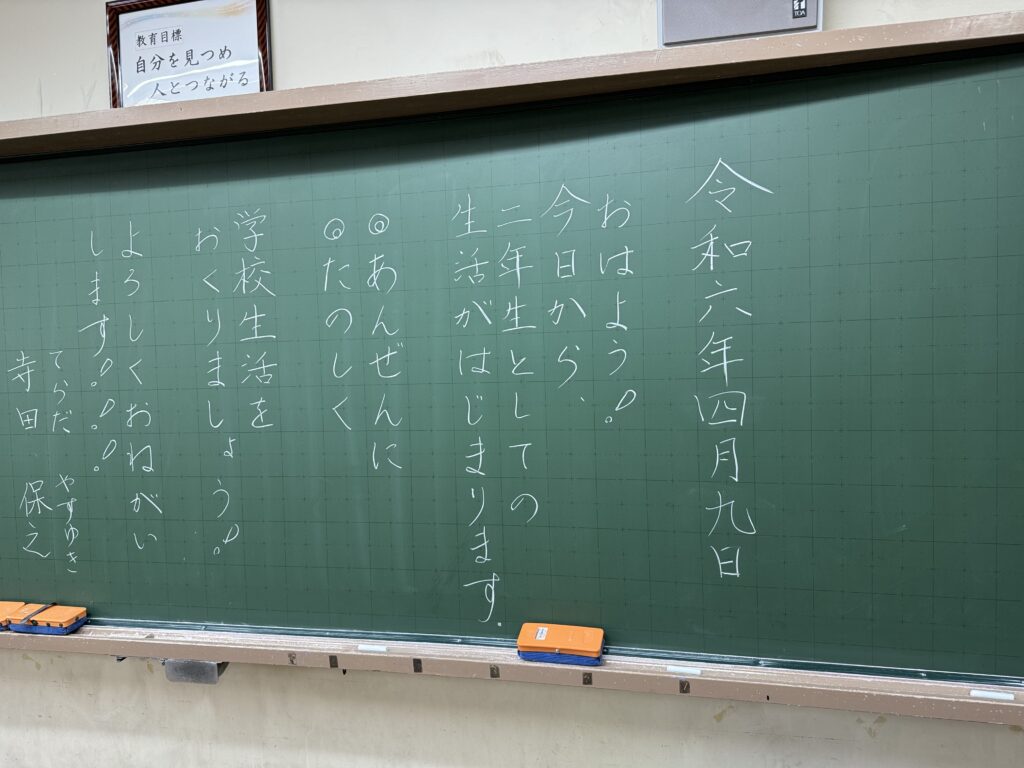 教育目標
自分を見つめ
人とつながる
TOA
令和六年四月九日
おはよう!
今日から、
二年生としての
生活がはじまります。
◎あんぜんに
◎たのしく
学校生活を
おくりましょう!
よろしくおねがい
します!!!
てらだ やすゆき
寺田 保之